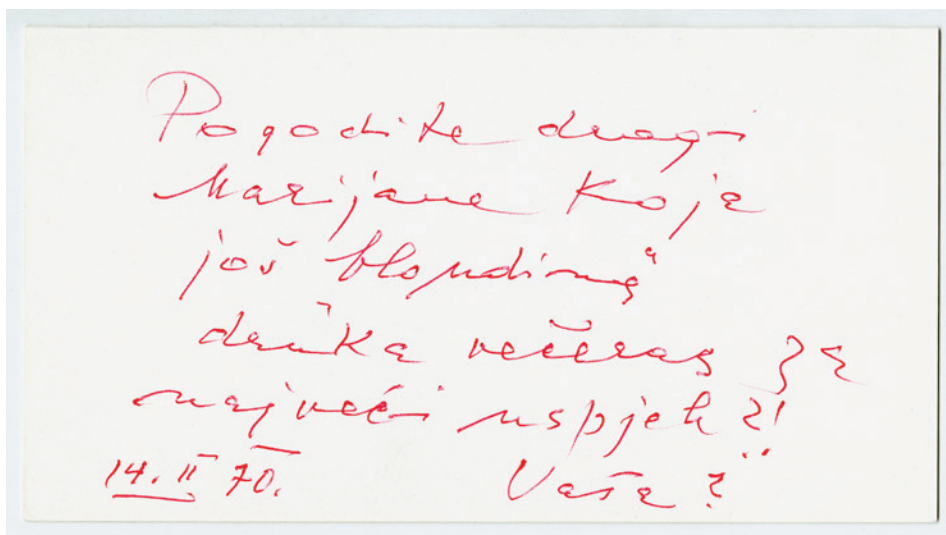 Pogodite dragi
Marijane koja
još "blondina"
druka večeras za
najveći uspjeh?!
14. II 70. Vaša?